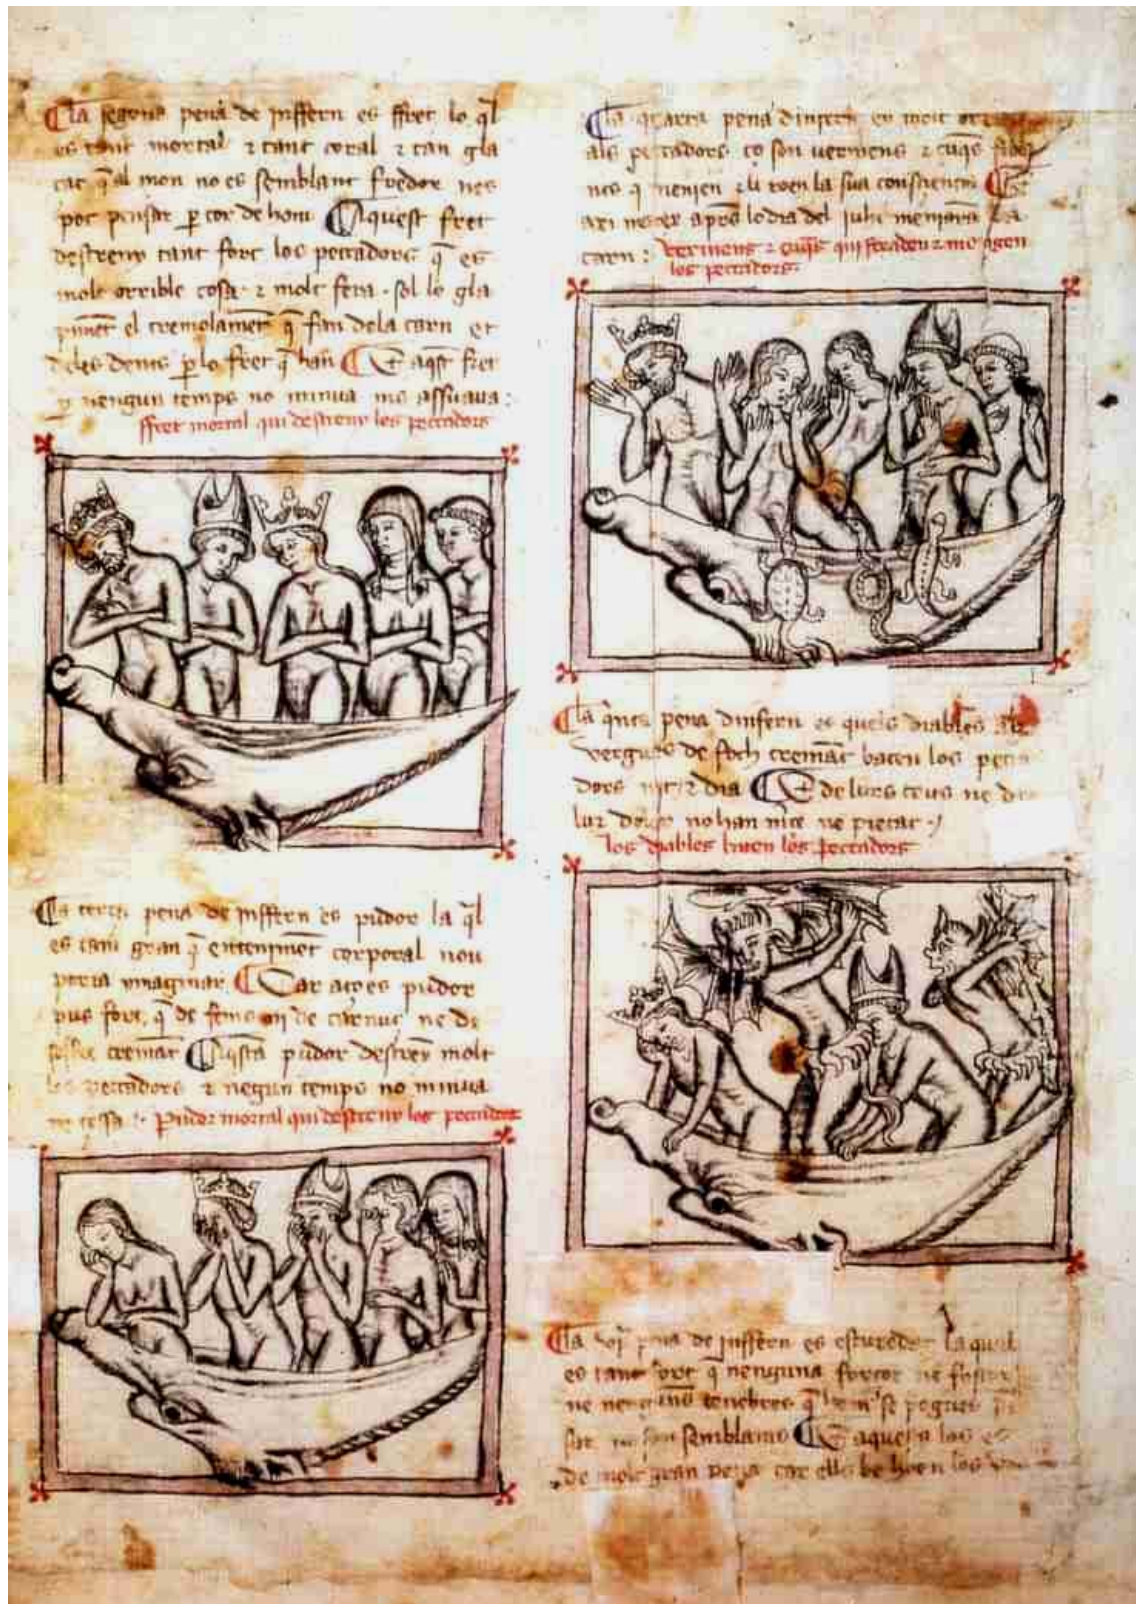 La segona pena de inffern es ffret lo ql̃
es tant mortal ⁊ tant coral ⁊ tan gla
çat q̃ al mon no es semblant fredor nes
pot pensar ꝑ cor de hom Aquest fret
destreny tant fort los peccadors q̃ es
molt orrible cosa ⁊ molt fera sol lo gla
el tremolamẽt q̃ fan dela carn et
deles dents ꝑ lo fret q̃ han E aq̃st fret
nengun temps no minua ne assuaua:
ffret mortal qui destreny los peccadors
La terça pena de inffern es pudor la ql̃
es tant gran q̃ entenimẽt corporal nou
poria ymaginar Car aço es pudor
pus fort q̃ de fems ni de carnuç ne de
sofre cremat Aq̃sta pudor destreny molt
los peccadors ⁊ negun temps no minua
ne cessa Pudor mortal qui destreny los peccadors
La quarta pena dinfern es molt
als peccadors ço son vermens ⁊ cuq̃s
q̃ menjen ⁊ li roen la sua consciencia E
axi apres lo dia del juhi menjaran la
carn: vermens ⁊ cuq̃s qui ⁊ mengen
los peccadors
La q̃nta pena dinfern es quels diables ab
vergues de foch cremãt baten los pecca
dors nit ⁊ dia E de lurs crits ne de
lur dolor no han ne pietat
los diables baten los peccadors
La vj pena de inffern es escuredat la qual
es tant fort q̃ nenguna foscor ne
ne tenebres q̃ hom se pogues
no son semblants E aquesta los es
de molt gran pena car ells be hoen los